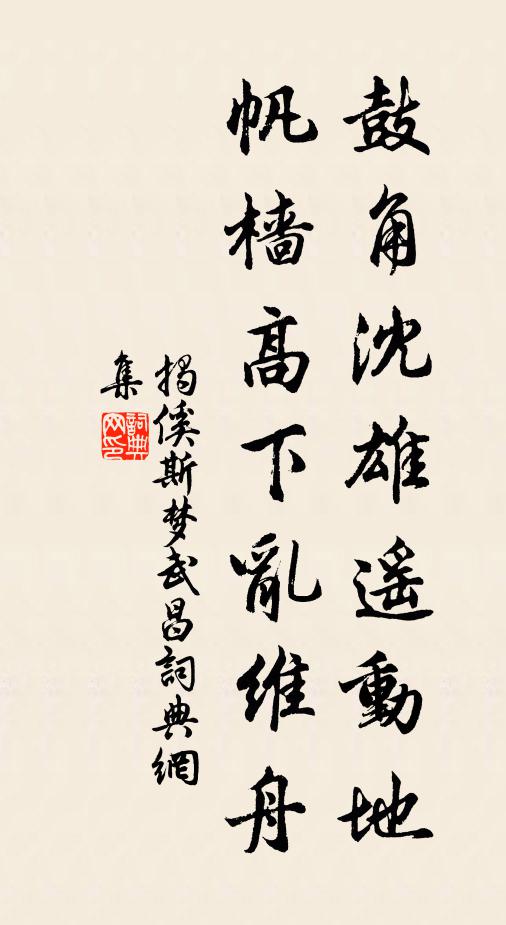 鼓角沈雄遥動地
帆檣高下亂維舟
揭傒斯梦武昌詞典網
集
詞典
网印